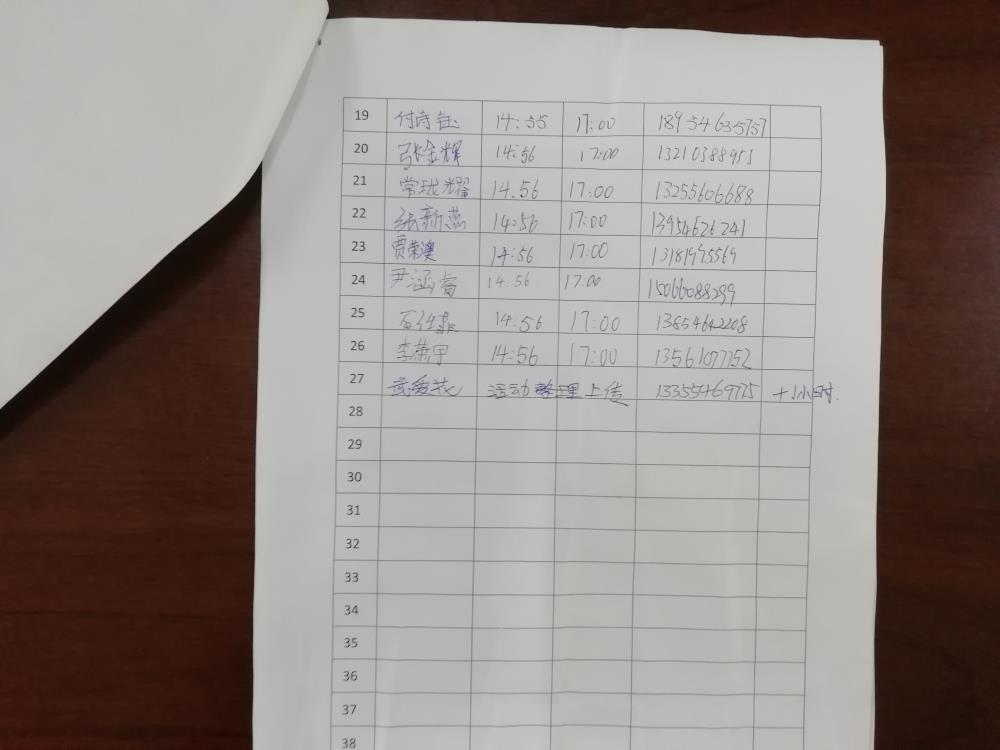 19 付诗钰 14:55 17:00 18954635757
20 张金辉 14:56 17:00 13210388953
21 常珑耀 14.56 17:00 13255606688
22 张新燕 14:56 17:00 13954626241
23 贾荣澳 14:56 17:00 13181995569
24 尹涵睿 14.56 17:00 15066088299
25 14:56 17:00 13854642208
26 李荣宇 14:56 17:00 13561077752
27 武爱花 活动整理上传 13355469775 +1小时.
28
29
30
31
32
33
34
35
36
37
38